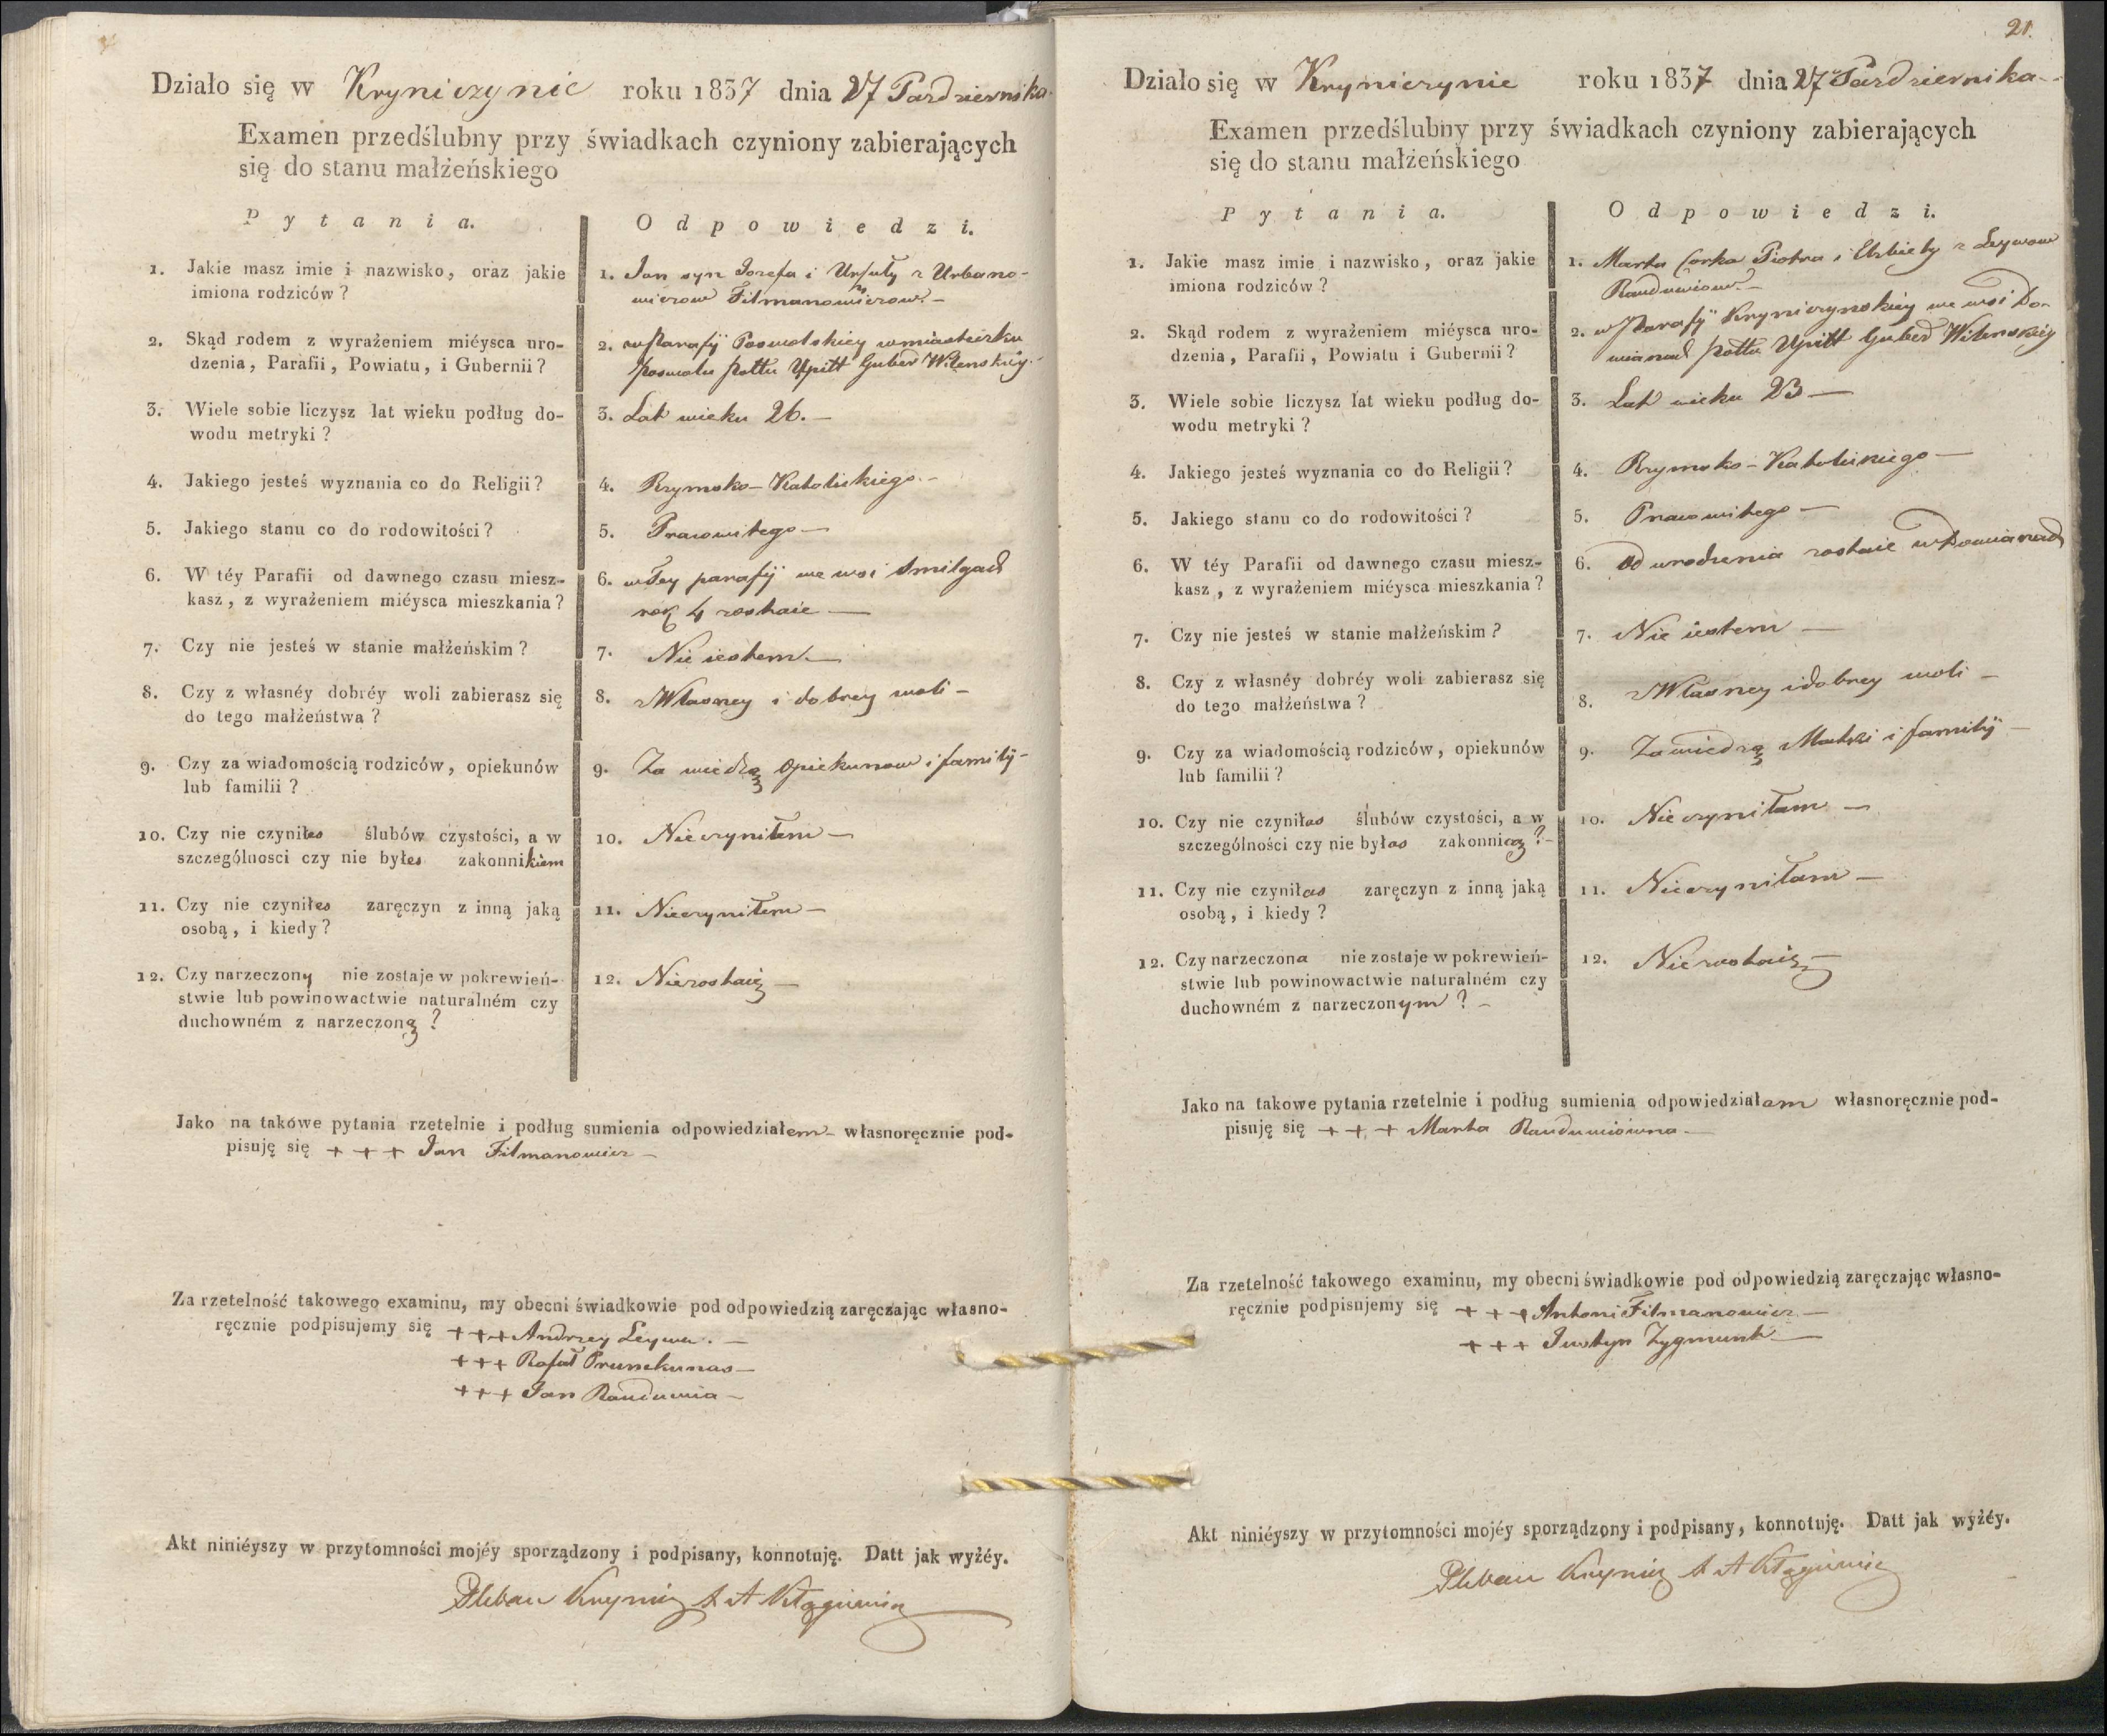 Działo się w Kryniczynie roku 1837 dnia 27 Pazdziernika
Examen przedślubny przy świadkach czyniony zabierających
się do stanu małżeńskiego
Pytania.
Odpowiedzi.
1. Jakie masz imie i nazwisko, oraz jakie
imiona rodziców?
1. Jan syn Jozefa i Urszuły z Urbano-
wiczow Filmanowiczow. –
2. Skąd rodem z wyrażeniem miéysca uro-
dzenia, Parafii, Powiatu, i Gubernii?
2. w Parafij Poswolskiey w miasteczku
Poswolu Pottu Upitt Guber Wilenskiey. –
3. Wiele sobie liczysz lat wieku podług do-
wodu metryki?
3. Lat wieku 26. –
4. Jakiego jesteś wyznania co do Religii?
4. Rzymsko-Katolickiego. –
5. Jakiego stanu co do rodowitości?
5. Pracowitego –
6. W téy Parafii od dawnego czasu miesz-
kasz, z wyrażeniem miéysca mieszkania?
6. w Tey parafij we wsi Smilgach
rok 4 zostaie –
7. Czy nie jesteś w stanie małżeńskim?
7. Nie iestem. –
8. Czy z własnéy dobréy woli zabierasz się
do tego małżeństwa?
8. z Własney i dobrey woli –
9. Czy za wiadomością rodziców, opiekunów
lub familii?
9. Za wiedzą Opiekunow i familij –
10. Czy nie czyniłes ślubów czystości, a w
szczególnosci czy nie byłes zakonnikiem
10. Nie czyniłem –
11. Czy nie czyniłes zaręczyn z inną jaką
osobą, i kiedy?
11. Nieczyniłem –
12. Czy narzeczony nie zostaje w pokrewień-
stwie lub powinowactwie naturalném czy
duchowném z narzeczoną?
12. Niezostaię –
Jako na takowe pytania rzetelnie i podług sumienia odpowiedziałem – własnoręcznie pod-
pisuję się + + + Jan Filmanowicz –
Za rzetelność takowego examinu, my obecni świadkowie pod odpowiedzią zaręczając własno-
ręcznie podpisujemy się +++ Andrzey Leywa. –
+++ Rafał Prunskunas –
+++ Jan Rauduwia –
Akt niniéyszy w przytomności mojéy sporządzony i podpisany, konnotuję. Datt jak wyżéy.
Pleban Krynicz
21.
Działo się w Kryniczynie roku 1837 dnia 27 Pazdziernika –
Examen przedślubny przy świadkach czyniony zabierających
się do stanu małżeńskiego
Pytania.
Odpowiedzi.
1. Jakie masz imie i nazwisko, oraz jakie
imiona rodziców?
1. Marta Corka Piotra i Elzbiety z Leywow
Rauduwiow. –
2. Skąd rodem z wyrażeniem miéysca uro-
dzenia, Parafii, Powiatu i Gubernii?
2. w Parafij Kryniczynskiey we wsi Do-
wianach Pottu Upitt Guber Wilenskiey
3. Wiele sobie liczysz lat wieku podług do-
wodu metryki?
3. Lat wieku 23 –
4. Jakiego jesteś wyznania co do Religii?
4. Rzymsko-Katolickiego –
5. Jakiego stanu co do rodowitości?
5. Pracowitego –
6. W téy Parafii od dawnego czasu miesz-
kasz, z wyrażeniem miéysca mieszkania?
6. Od urodzenia zostaie w Dowianach
7. Czy nie jesteś w stanie małżeńskim?
7. Nie iestem –
8. Czy z własnéy dobréy woli zabierasz się
do tego małżeństwa?
8. z Własney i dobrey woli –
9. Czy za wiadomością rodziców, opiekunów
lub familii?
9. Za wiedzą Matki i familij –
10. Czy nie czyniłas ślubów czystości, a w
szczególności czy nie byłas zakonnicą? –
10. Nie czyniłam –
11. Czy nie czyniłas zaręczyn z inną jaką
osobą, i kiedy?
11. Nieczyniłam –
12. Czy narzeczona nie zostaje w pokrewień-
stwie lub powinowactwie naturalném czy
duchowném z narzeczonym? –
12. Niezostaię –
Jako na takowe pytania rzetelnie i podług sumienia odpowiedziałam własnoręcznie pod-
pisuję się + + + Marta Rauduwiowna –
Za rzetelność takowego examinu, my obecni świadkowie pod odpowiedzią zaręczając własno-
ręcznie podpisujemy się + + + Antoni Filmanowicz –
+ + + Justyn Zygmunt –
Akt niniéyszy w przytomności mojéy sporządzony i podpisany, konnotuję. Datt jak wyżéy.
Pleban Krynicz